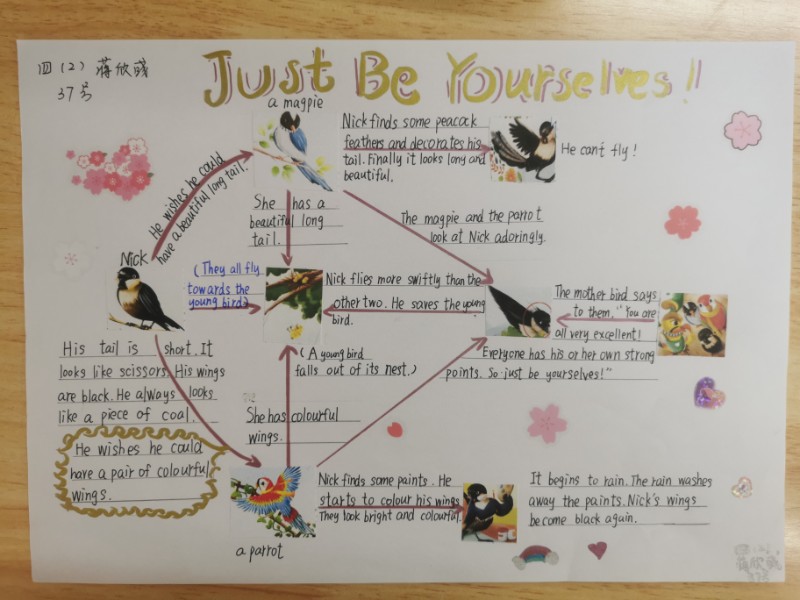 四(2) 蒋欣彧
37号
Just Be Yourselves!
a magpie
Nick finds some peacock
feathers and decorates his
tail. Finally it looks lony and
beautiful.
He can't fly!
He wishes he could
have a beautiful long tail.
She has a
beautiful long
tail.
The magpie and the parrot
look at Nick adoringly.
Nick
(They all fly
towards the
young bird.)
Nick flies more swiftly than the
other two. He saves the young
bird.
The mother bird says
to them, "You are
all very excellent!
"Everyone has his or her own strong
points. So just be yourselves!"
His tail is short. It
looks like scissors. His wings
are black. He always looks
like a piece of coal.
(A young bird
falls out of its nest.)
She has colourful
wings.
He wishes he could
have a pair of colourful
wings.
a parrot
Nick finds some paints. He
starts to colour his wings.
They look bright and colourful.
It begins to rain. The rain washes
away the paints. Nick's wings
become black again.